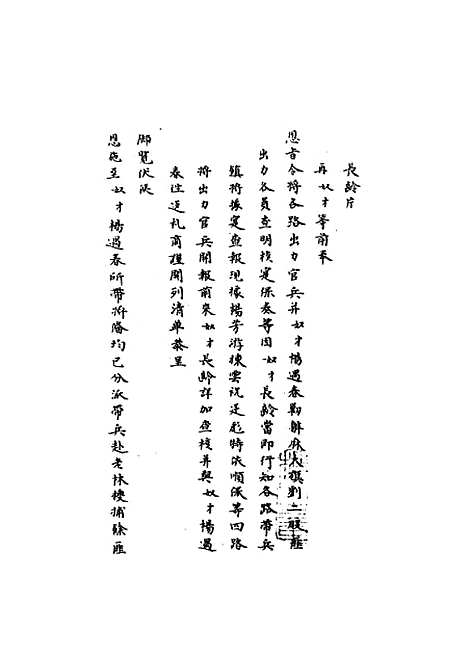 長齡片
再奴才等前奉
恩旨令將各路出力官兵并奴才楊遇春勦辦麻大旗劉二股匪
出力各員查明核定保奏等因奴才長齡當即行知各路帶兵
鎮將據定查報現據楊芳游棟雲祝廷彪特依順保等四路
將出力官兵開報前來奴才長齡詳加查核并與奴才楊遇
春往返札商謹開列清單恭呈
御覽伏候
恩施至奴才楊遇春所帶將備均已分派帶兵赴老林搜捕餘匪